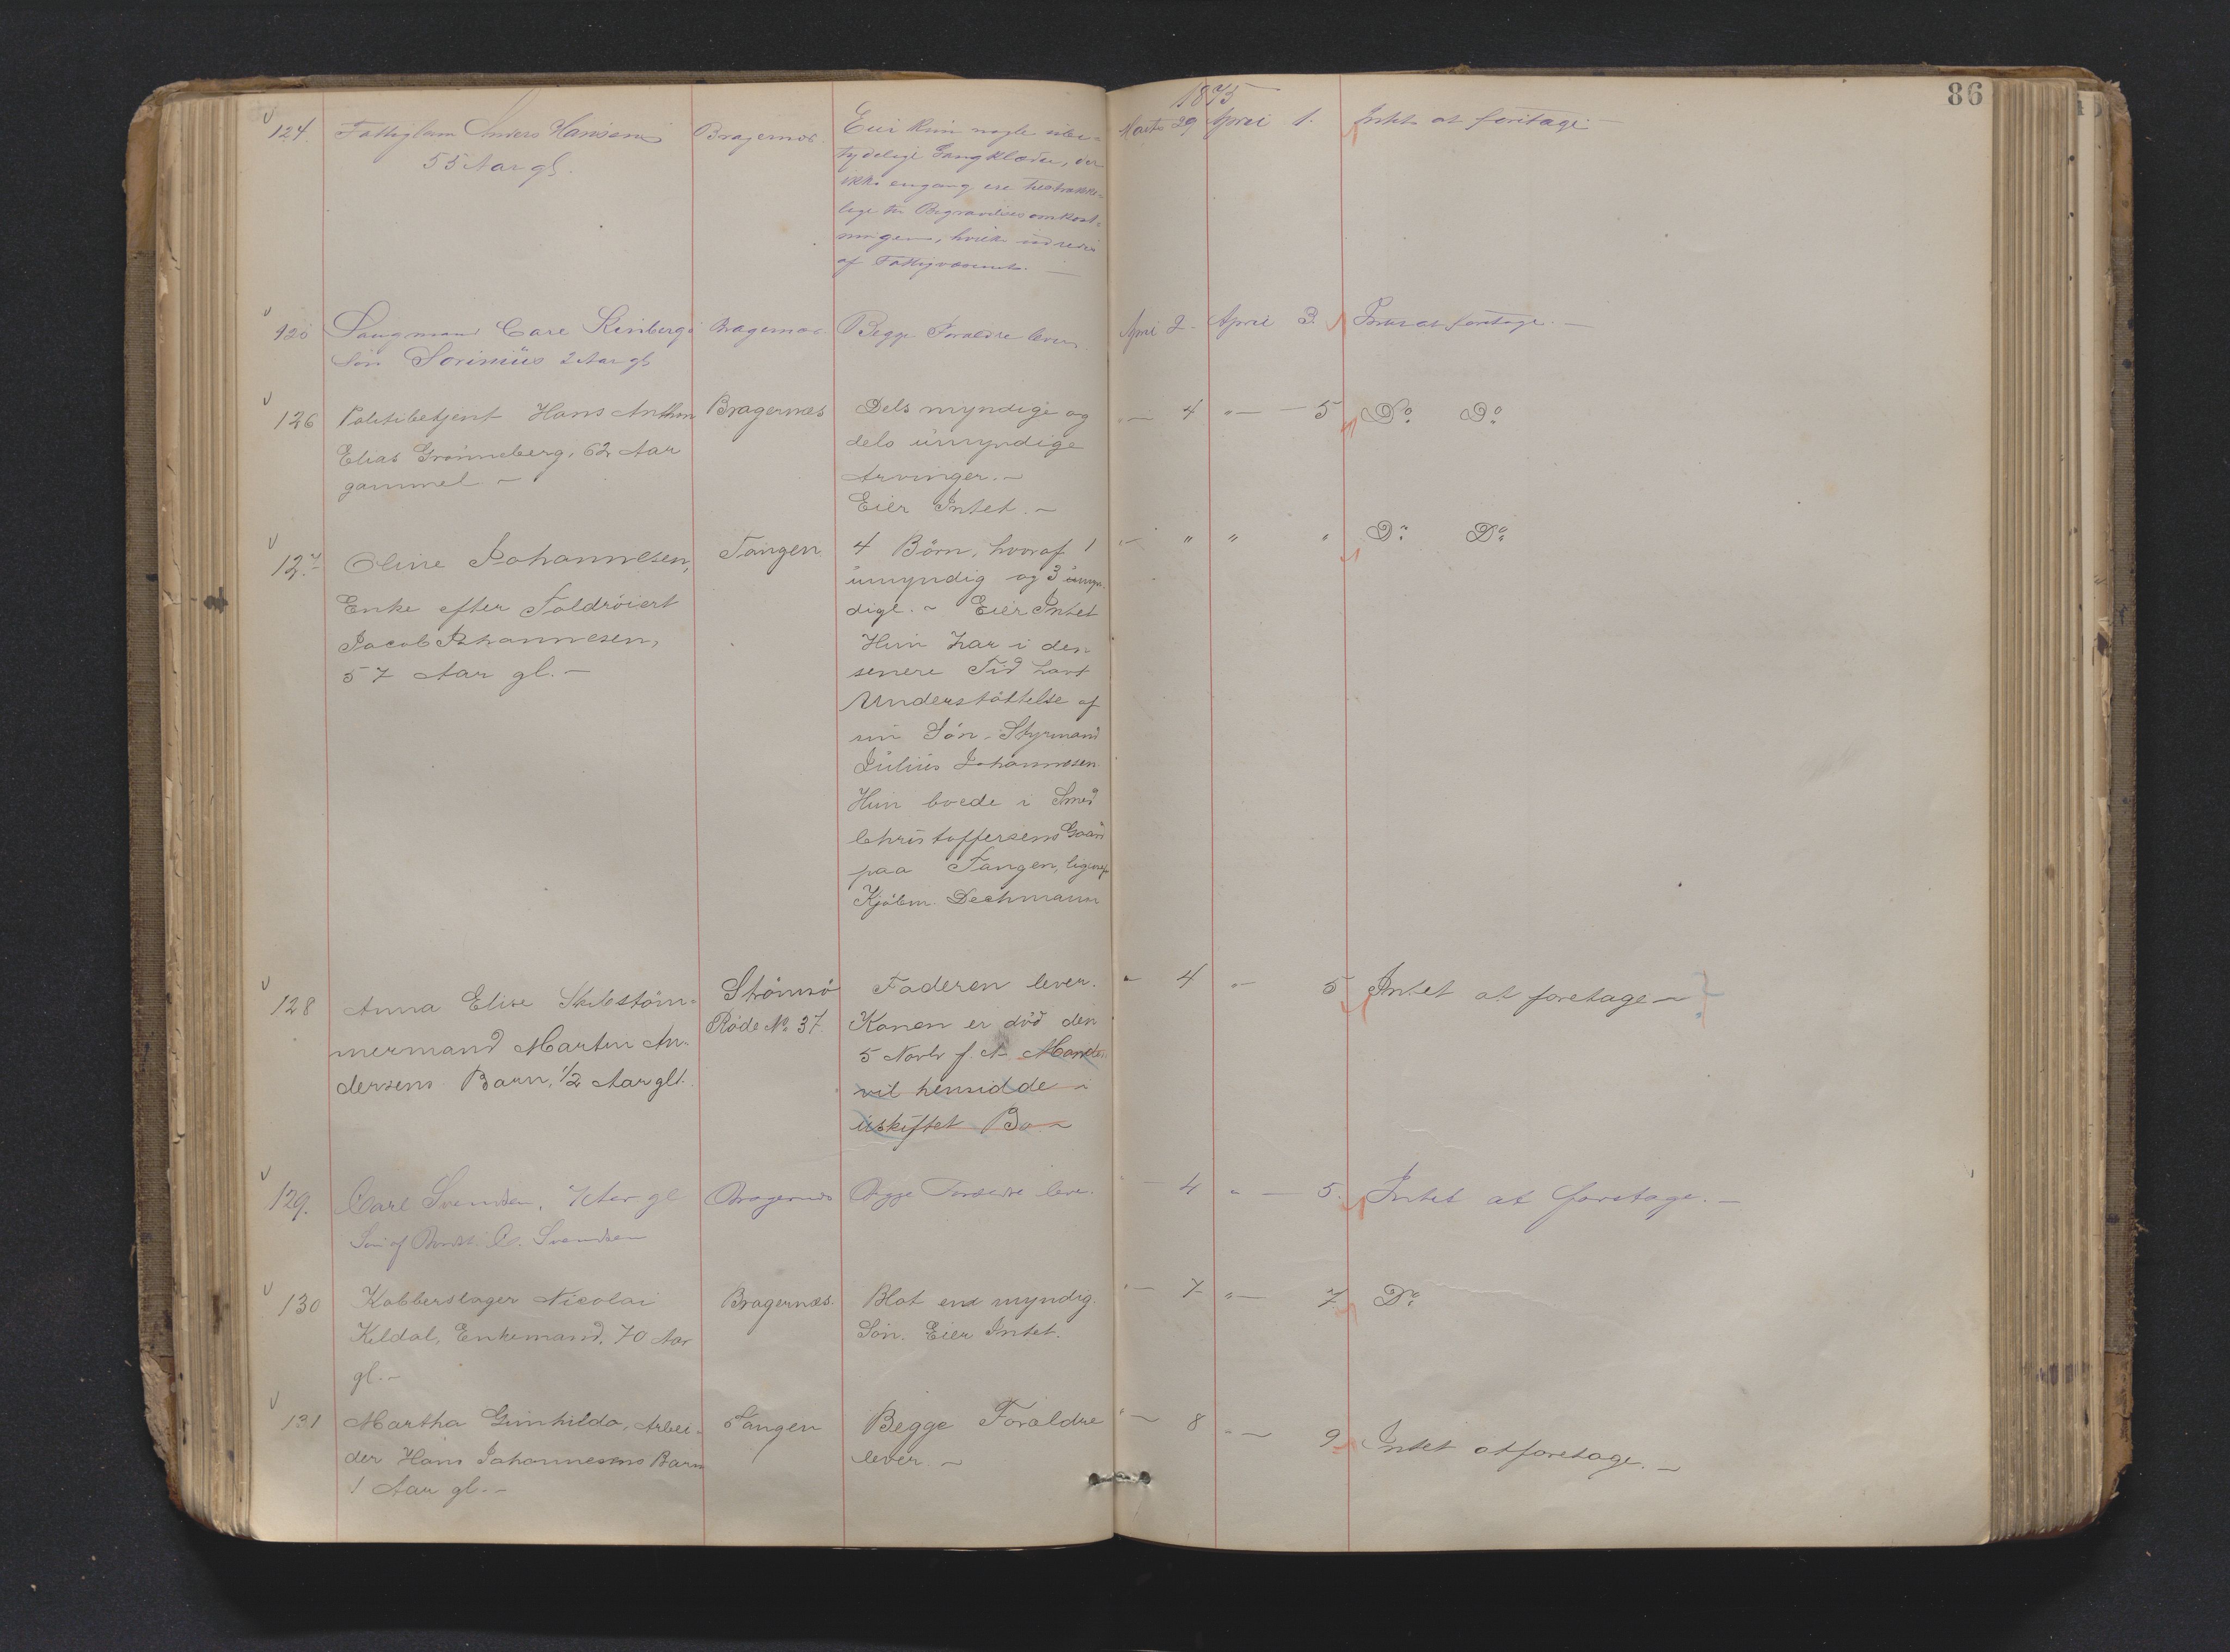 1875
86
124. Fattiglem Anders Hansen Bragernæs. Eier kun nogle ube- Marts 29 April 1. Intet at foretage. —
55 Aar gl. tydelige Gangklæder, der
ikke engang ere tilstrække-
lige til Begravelsesomkost-
ningen, hvilke udredes
af Fattigvæsenet. —
125 Laugmand Carl Bragernæs. Begge Forældre lever. April 2. April 3. Intet at foretage. —
Søn 2 Aar gl.
126 Politibetjent Hans Anthon Bragernæs Dels myndige og " — 4 " — 5 Do. Do.
Elias Grønneberg, 62 Aar dels umyndige
gammel. — Arvinger. —
Eier Intet. —
127. Oline Johannesen, Tangen 4 Börn, hvoraf 1 " " " " Do. Do.
Enke efter Toldröiert umyndig og 3 umyn-
Jacob Johannesen, dige. — Eier Intet
57 Aar gl. — Hun har i den
senere Tid havt
Understöttelse af
sin Sön, Styrmand
Julius Johannesen.
Hun boede i Smed
Christoffersens Gaard
paa Tangen, ligeved
Kjöbm. Dechmann
128 Anna Elise Skibstöm- Strömsö Faderen lever. " 4 " 5 Intet at foretage —
mermand Martin An- Rode No. 37. Konen er död den
dersens Barn, 1/2 Aar glt. 5 Novbr f. A. Manden
vil hensidde i
uskiftet Bo —
129. Carl Svendsen, Aar gl Bragernæs Begge Forældre leve. — 4 " — 5. Intet at foretage. —
Sön af C. Svendsen
130 Kobberslager Nicolai Bragernæs. Blot en myndig " — 7 " — 7 Do.
Keldal, Enkemand, 70 Aar Sön. Eier Intet.
gl. —
131 Martha Gunhilda, Arbei- Tangen Begge Forældre " — 8 " — 9 Intet at foretage. —
der Hans Johannesens Barn lever. —
1 Aar gl. —